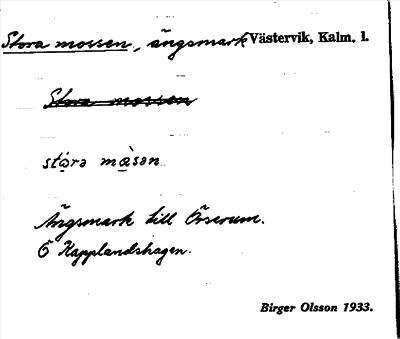 Stora mossen, ängsmark Västervik, Kalm. l.
Stora mossen
stɷ̀rə mɷ̀sən
Ängsmark till Örserum.
Ö Kapplandshagen.
Birger Olsson 1933.